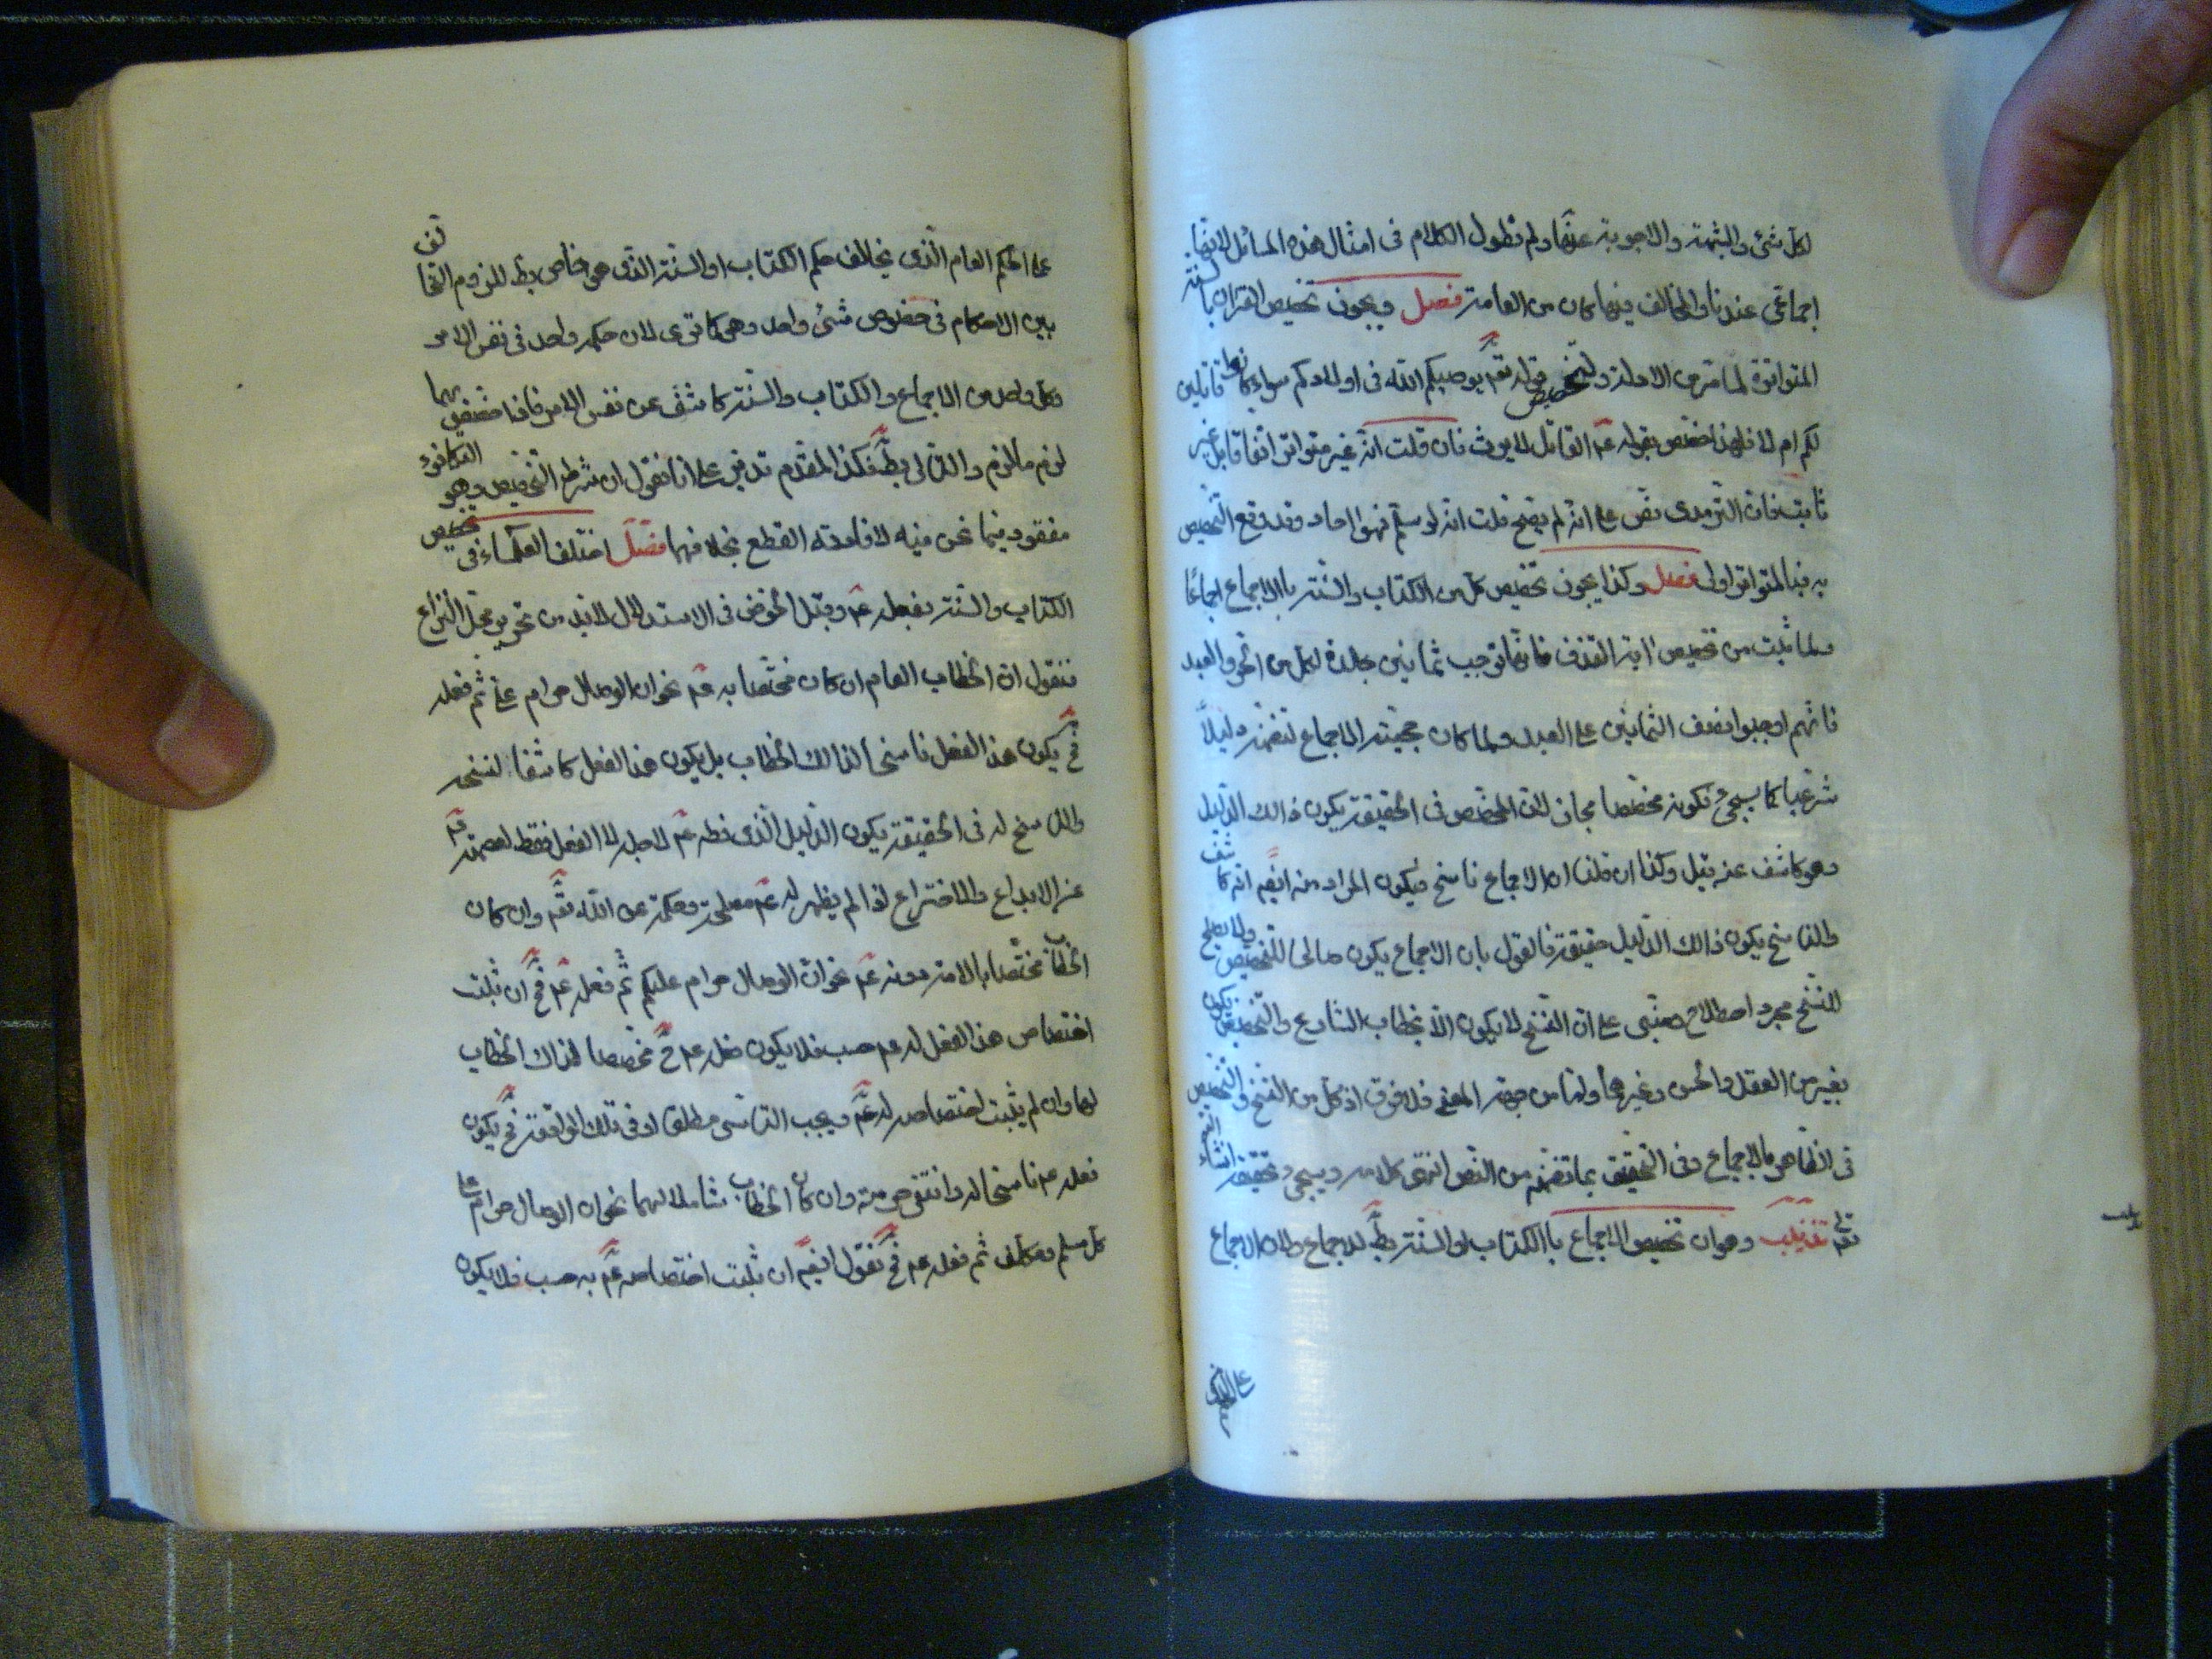 لكل شئ والشبهة والاجوبة عنها ولم نطول الكلام فى امثال هذه المسائل لانها
اجماعى عندنا والمخالف فيها كان من العامة فصل ويجوز تخصيص القران بالسنة
المتواترة لما مر من الادلة ولتخصيص قوله تعم يوصيكم الله فى اولادكم سواء كانوا قاتلين
لكم ام لا فلهذا خصص بقوله عم القاتل لا يرث فان قلت انه غير متواتر اتفاقا بل غير
ثابت فان الترمدى نص على انه لم يصح قلت انه لو سلم فهو احاد وقد وقع التخصيص
به فبالمتواتر اولى فصل وكذا يجوز تخصيص كل من الكتاب والسنة باالاجماع اجماعًا
ولما ثبت من تخصيص اية القذف فانها توجب ثمانين جلدة لكل من الحر والعبد
فانهم اوجبوا نصف الثمانين على العبد ولما كان حجية الاجماع لتضمنه دليلًا
شرعيا كما يسجئ فكونه مخصصا مجاز لان المخصص فى الحقيقة يكون ذالك الدليل
وهو كاشف عنه قيل وكذا ان قلنا ان الاجماع ناسخ فيكون المراد منه ايضم انه كاشف
والناسخ يكون ذالك الدليل حقيقة فالقول بان الاجماع يكون صالحا للتخصيص ولا يصلح
للنسخ مجرد اصطلاح مبتنى على ان النسخ لا يكون الا بخطاب الشارع والتخصيص يكون
بغيره من العقل والحس وغيرهما واما من جهة المعنى فلا فرق اذ كل من النسخ والتخصيص
فى الظاهر بالاجماع وفى التحقيق بما تضمنه من النص انتهى كلامه ويسجئ تحقيقه انشاء الله
تعم تذنيب وهو ان تخصيص الاجماع باالكتاب او السنة بط للاجماع ولان الاجماع
على الحكم
على الحكم العام الذى يخالف حكم الكتاب او السنة الذى هو خاص بط للزوم التخالف
بين الاحكام فى خصوص شئ واحد وهو كما ترى لان حكمه واحد فى نفس الامر
وكل واحد من الاجماع والكتاب والسنة كاشف عن نفس الامر فاذا خصص بهما
لزم ما لزم والتالى بط فكذا المقدم تدبر على انا نقول ان شرط التخصيص وهو التكافوء
مفقود فيما نحن فيه لافادته القطع بخلافهما فصل اختلف العلماء فى تخصيص
الكتاب والسنة بفعله عم وقبل الخوض فى الاستدلال لابد من تحرير محل النزاع
فنقول ان الخطاب العام ان كان مختصا به عم نحو ان الوصال حرام على ثم فعله
فح يكون هذا الفعل ناسخا لذالك الخطاب بل يكون هذا الفعل كاشفا لنسخه
والناسخ له فى الحقيقة يكون الدليل الذى فعله عم لاجله لا الفعل فقط لعصمته عم
عن الابداع والاختراع اذا لم يظهر له عم مصلحة وحكمة عن الله تعم وان كان
الخطاب مختصا بالامة دونه عم نحو ان الوصال حرام عليكم ثم فعله عم فح ان ثبت
اختصاص هذا الفعل له عم حسب فلا يكون فعله عم ح مخصصا لذاك الخطاب
لها وان لم يثبت اختصاصه له عم ويجب التاسى مطلقا او فى تلك الواقعة فح يكون
فعله عم ناسخا له وانتفى حرمته وان كان الخطاب شاملا لهما نحو ان الوصال حرام على
كل مسلم ومكلف ثم فعله عم فح نقول ايضم ان ثبت اختصاصه عم به حسب فلا يكون